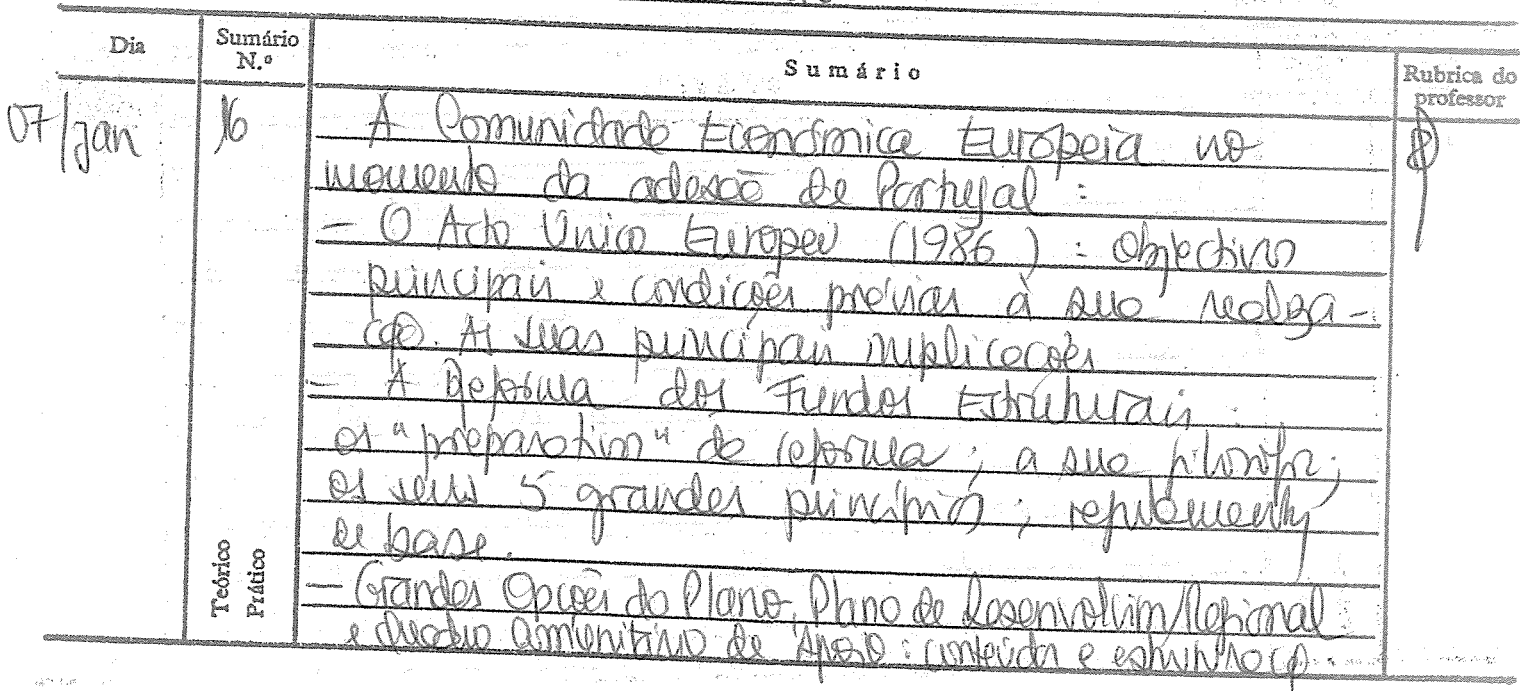 Dia Sumário N.º Sumário Rubrica do professor
07/jan 16 A Comunidade Económica Europeia no
momento da adesão de Portugal :
- O Acto Único Europeu (1986) : objectivos
principais e condições prévias à sua realiza-
ção. As suas principais implicações
- A Reforma dos Fundos Estruturais :
os "preparativos" da reforma ; a sua filosofia ;
os seus 5 grandes princípios ; regulamentos
de base.
- Grandes Opções do Plano, Plano de Desenvolvim/ Regional
e Quadro Comunitário de Apoio : conteúdos e
Teórico
Prático